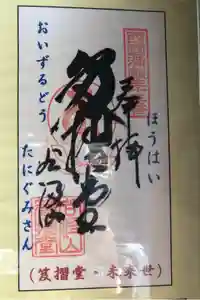 奉拝
ほうはい
笈摺堂
谷汲山
おいずるどう
たにぐみさん
(笈摺堂・未来世)